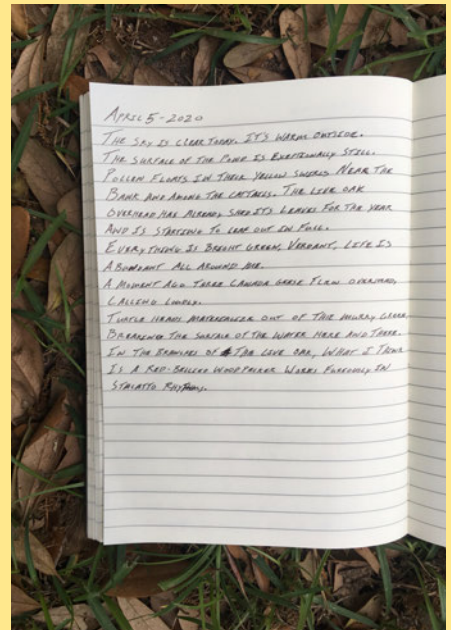 April 5-2020
The sky is clear today. It's warm outside.
The surface of the pond is exceptionally still.
Pollen floats in their yellow swirls near the
bank and among the cattails. The live oak
overhead has already shed its leaves for the year
and is starting to leaf out in full.
Everything is bright green, verdant, life is
abundant all around me.
A moment ago three Canada geese flew overhead,
calling loudly.
Turtle heads materialize out of the murky green,
breaking the surface of the water here and there.
In the branches of the live oak, what I think
is a red-bellied woodpecker works furiously in
staccato rhythms.